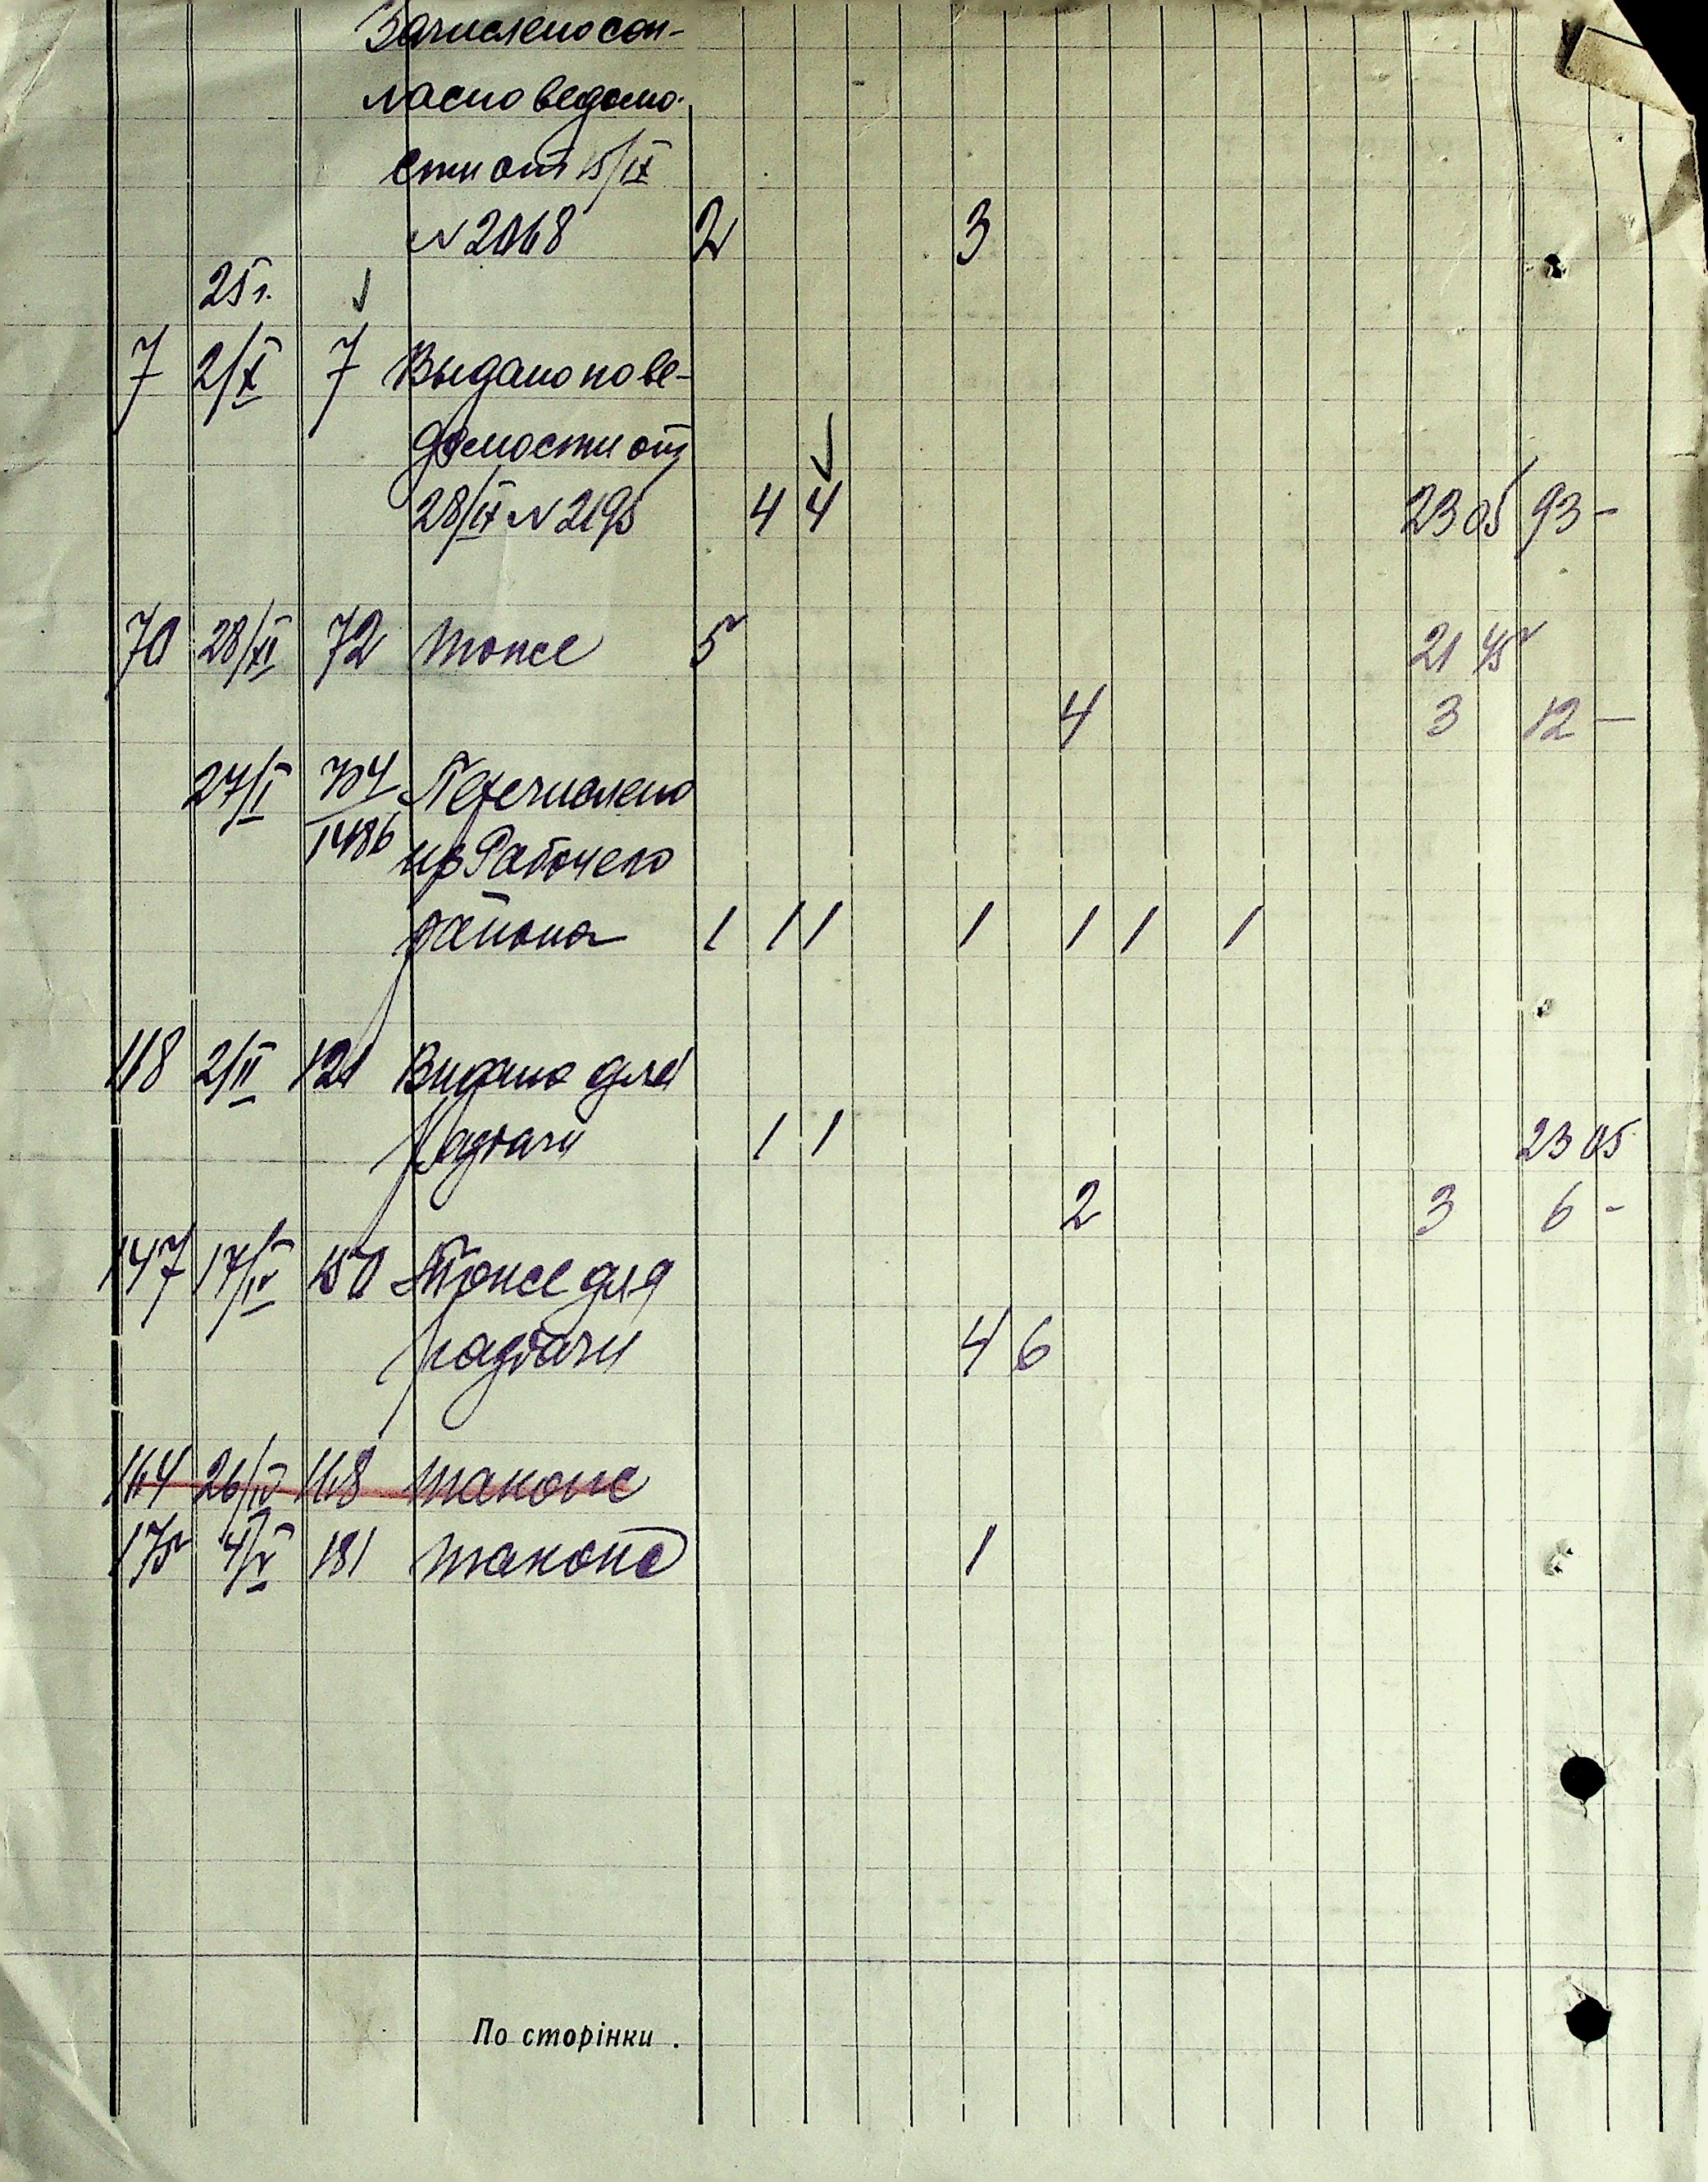 Зачислено сог-
ласно ведомо-
сти от 15/IX
N 2068 2 3
25 г.
7 2/X 7 Выдано по ве-
домости от
28/IX N 2195 4 4 23 05 93 -
70 28/XI 72 тоже 5 21 45
4 3 12 -
27/I 704 Перечислено
1486 из Рабочего
района 1 1 1 1 1 1 1
118 2/II 121 Видано для
радтачи 1 1 23 05
2 3 6 -
147 17/IV 150 Тоже для
радтачи 4 6
164 26/IV 168 также
175 4/V 181 також 1
По сторінки .